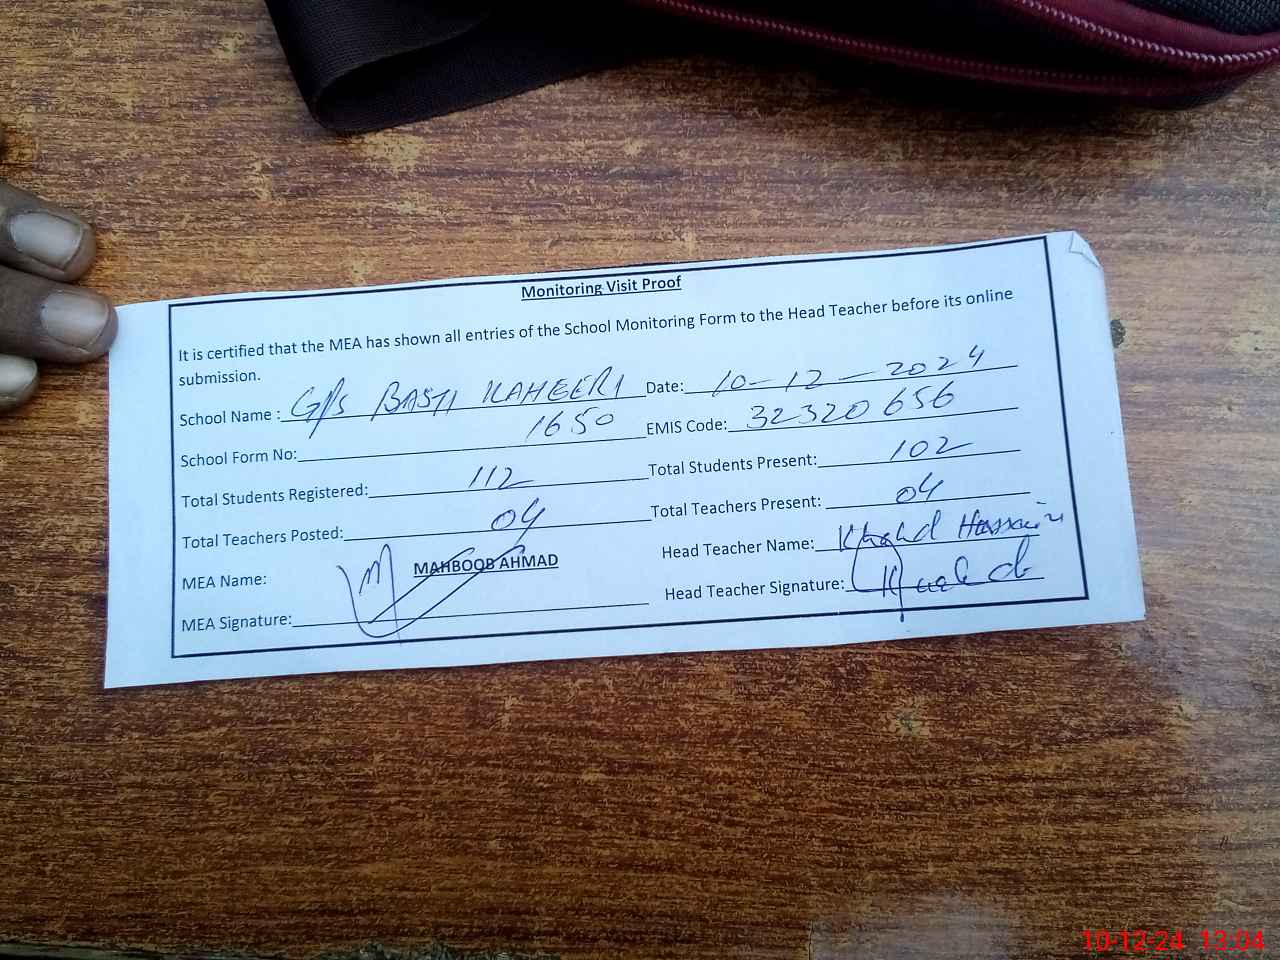 Monitoring Visit Proof
It is certified that the MEA has shown all entries of the School Monitoring Form to the Head Teacher before its online
submission.
School Name : G/Ps BASTI KAHEERI Date: 10-12-2024
School Form No: 1650 EMIS Code: 32320656
Total Students Registered: 112 Total Students Present: 102
Total Teachers Posted: 04 Total Teachers Present: 04
MEA Name: MAHBOOB AHMAD Head Teacher Name: Khalid Hussain
MEA Signature: Head Teacher Signature: Khalid
10-12-24 13:04